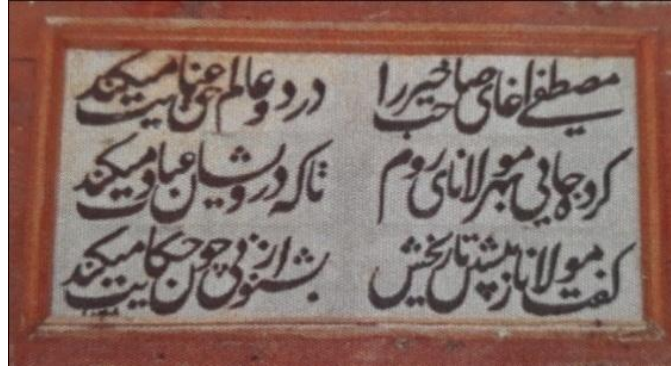 مصطفی آغای صاحب خیر را در دو عالم حق عنایت میکند
کرد جایی بهر مولانای روم تا که درویشان عبادت میکند
کفت مولانا ز پیش تاریخش بشنو از نی چون حکایت میکند